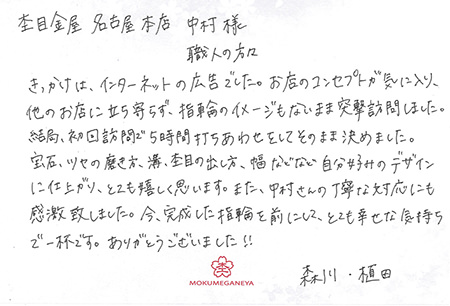 杢目金屋 名古屋本店 中村様
職人の方々
きっかけは、インターネットの広告でした。お店のコンセプトが気に入り、
他のお店に立ち寄らず、指輪のイメージもないまま突撃訪問しました。
結局、初回訪問で5時間打ちあわせをしてそのまま決めました。
宝石、ツヤの磨き方、溝、杢目の出し方、幅などなど自分好みのデザイン
に仕上がり、とても嬉しく思います。また、中村さんの丁寧な対応にも
感激致しました。今、完成した指輪を前にして、とても幸せな気持ち
で一杯です。ありがとうございました!!
MOKUMEGANEYA
森川・植田